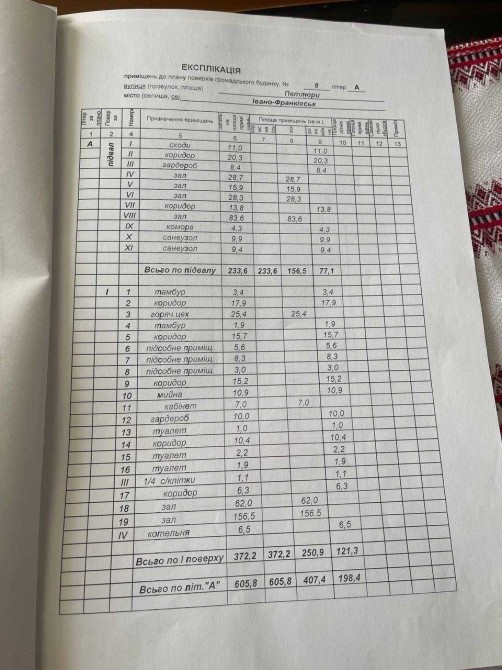 ЕКСПЛІКАЦІЯ
приміщень до плану поверхів громадського будинку, № 8 літер А
вулиця (провулок, площа) Петлюри
місто (селище, се) Івано-Франківськ
Призначення приміщень Площа приміщень (кв.м.)
1 2 4 5 6 7 8 9 10 11 12 13
А підвал I сходи 11,0 11,0
II коридор 20,3 20,3
III гардероб 8,4 8,4
IV зал 28,7 28,7
V зал 15,9 15,9
VI зал 28,3 28,3
VII коридор 13,8 13,8
VIII зал 83,6 83,6
IX комора 4,3 4,3
X санвузол 9,9 9,9
XI санвузол 9,4 9,4
Всього по підвалу 233,6 233,6 156,5 77,1
I 1 тамбур 3,4 3,4
2 коридор 17,9 17,9
3 горяч.цех 25,4 25,4
4 тамбур 1,9 1,9
5 коридор 15,7 15,7
6 підсобне приміщ. 5,6 5,6
7 підсобне приміщ. 8,3 8,3
8 підсобне приміщ. 3,0 3,0
9 коридор 15,2 15,2
10 мийна 10,9 10,9
11 кабінет 7,0 7,0
12 гардероб 10,0 10,0
13 туалет 1,0 1,0
14 коридор 10,4 10,4
15 туалет 2,2 2,2
16 туалет 1,9 1,9
III 1/4 с/клітки 1,1 1,1
17 коридор 6,3 6,3
18 зал 62,0 62,0
19 зал 156,5 156,5
IV котельня 6,5 6,5
Всього по I поверху 372,2 372,2 250,9 121,3
Всього по літ."А" 605,8 605,8 407,4 198,4